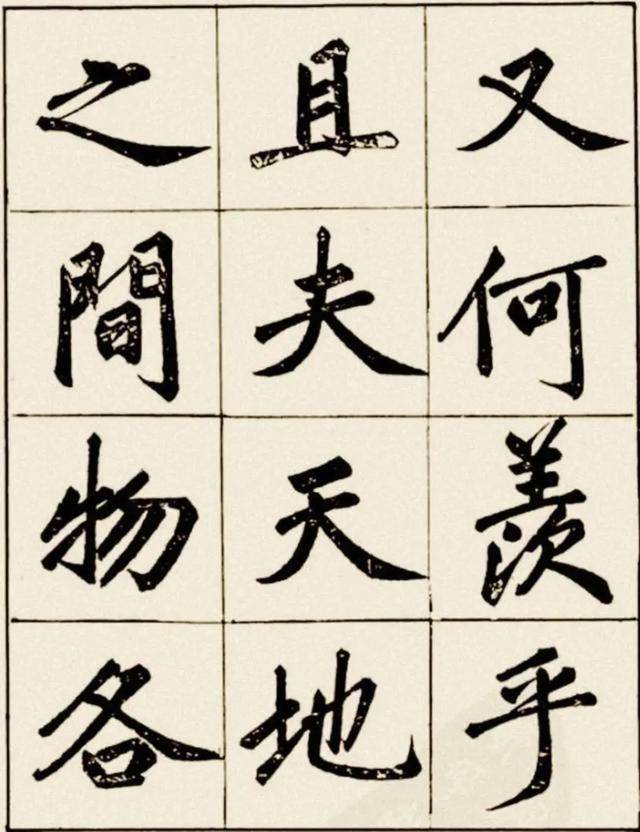 又何羨乎
且夫天地
之間物各